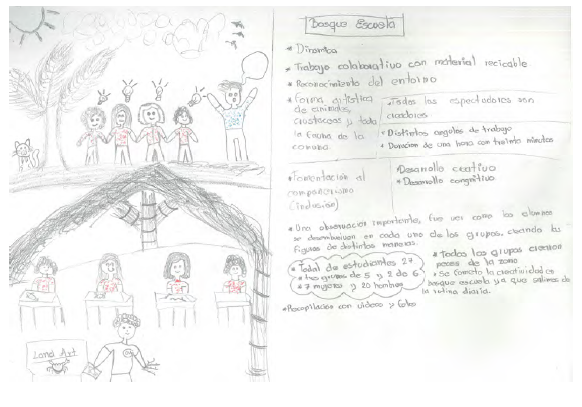 Bosque Escuela
* Dinamica
* Trabajo colaborativo con material recicable
* Reconocimiento del entorno
* Forma artistica
de animales,
crustaceos y toda
la fauna de la
comuna.
* Todos los espectadores son
creadores
* Distintos angulos de trabajo
* Duracion de una hora con treinta minutos
* Fomentación al
compañerismo
(inclusion)
* Desarrollo creativo
* Desarrollo congnitivo
* Una observacion importante, fue ver como los alumnos
se desenvuelven en cada uno de los grupos, creando las
figuras de distintas maneras.
* Total de estudiantes 27
* tres grupos de 5 y 2 de 6
* 7 mujeres y 20 hombres
* Todos los grupos crearon
peces de la zona
* Se fomento la creatividad en
bosque escuela ya que salimos de
la rutina diaria.
* Recopilación con videos y fotos
Land Art